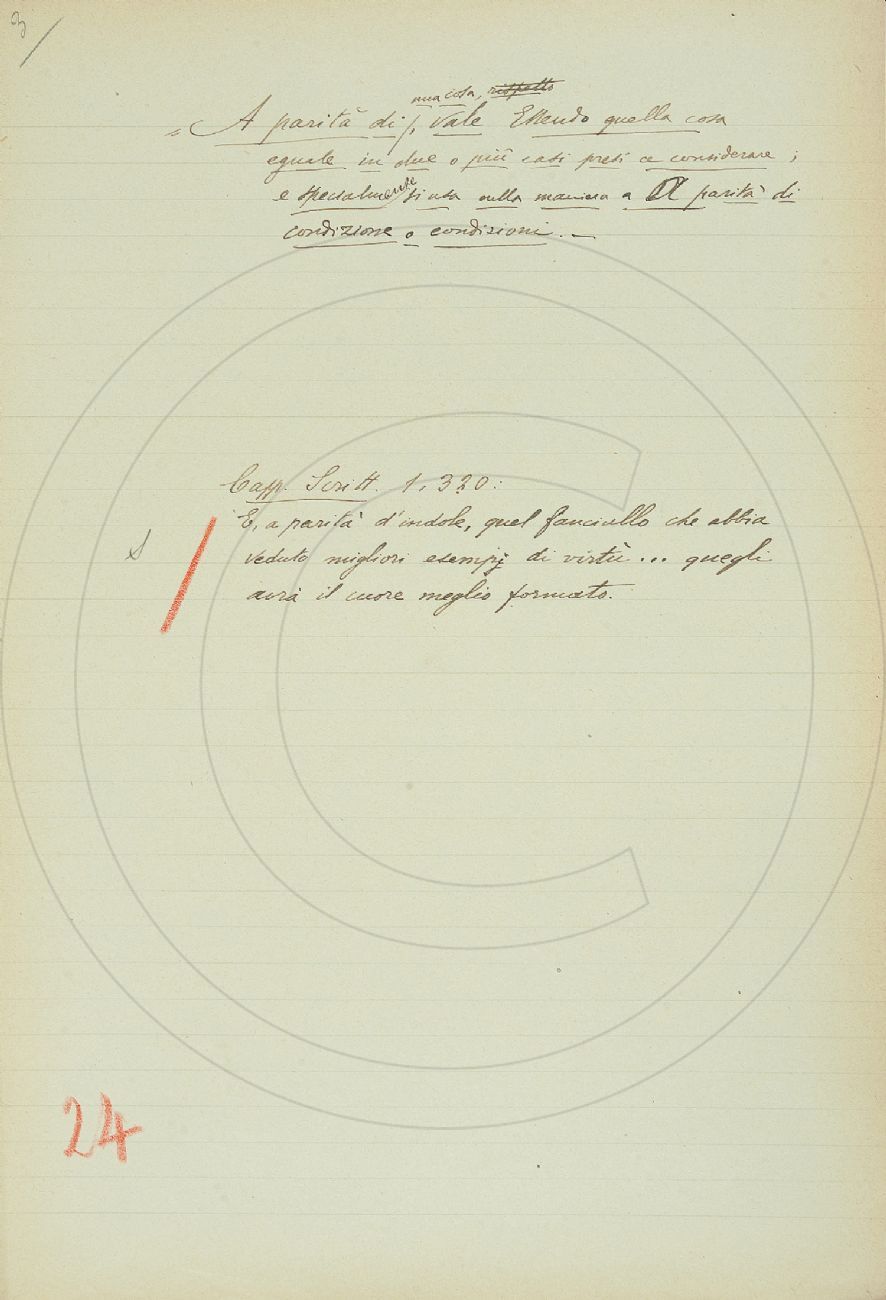 3
una cosa, rispetto
= A parità di /, vale Essendo quella cosa
eguale in due o più casi presi a considerare ;
e specialmente si usa nella maniera a A parità di
condizione o condizioni. —
Capp. Scritt. 1, 320:
E, a parità d'indole, quel fanciullo che abbia
veduto migliori esempj di virtù ... quegli
avrà il cuore meglio formato.
S
24